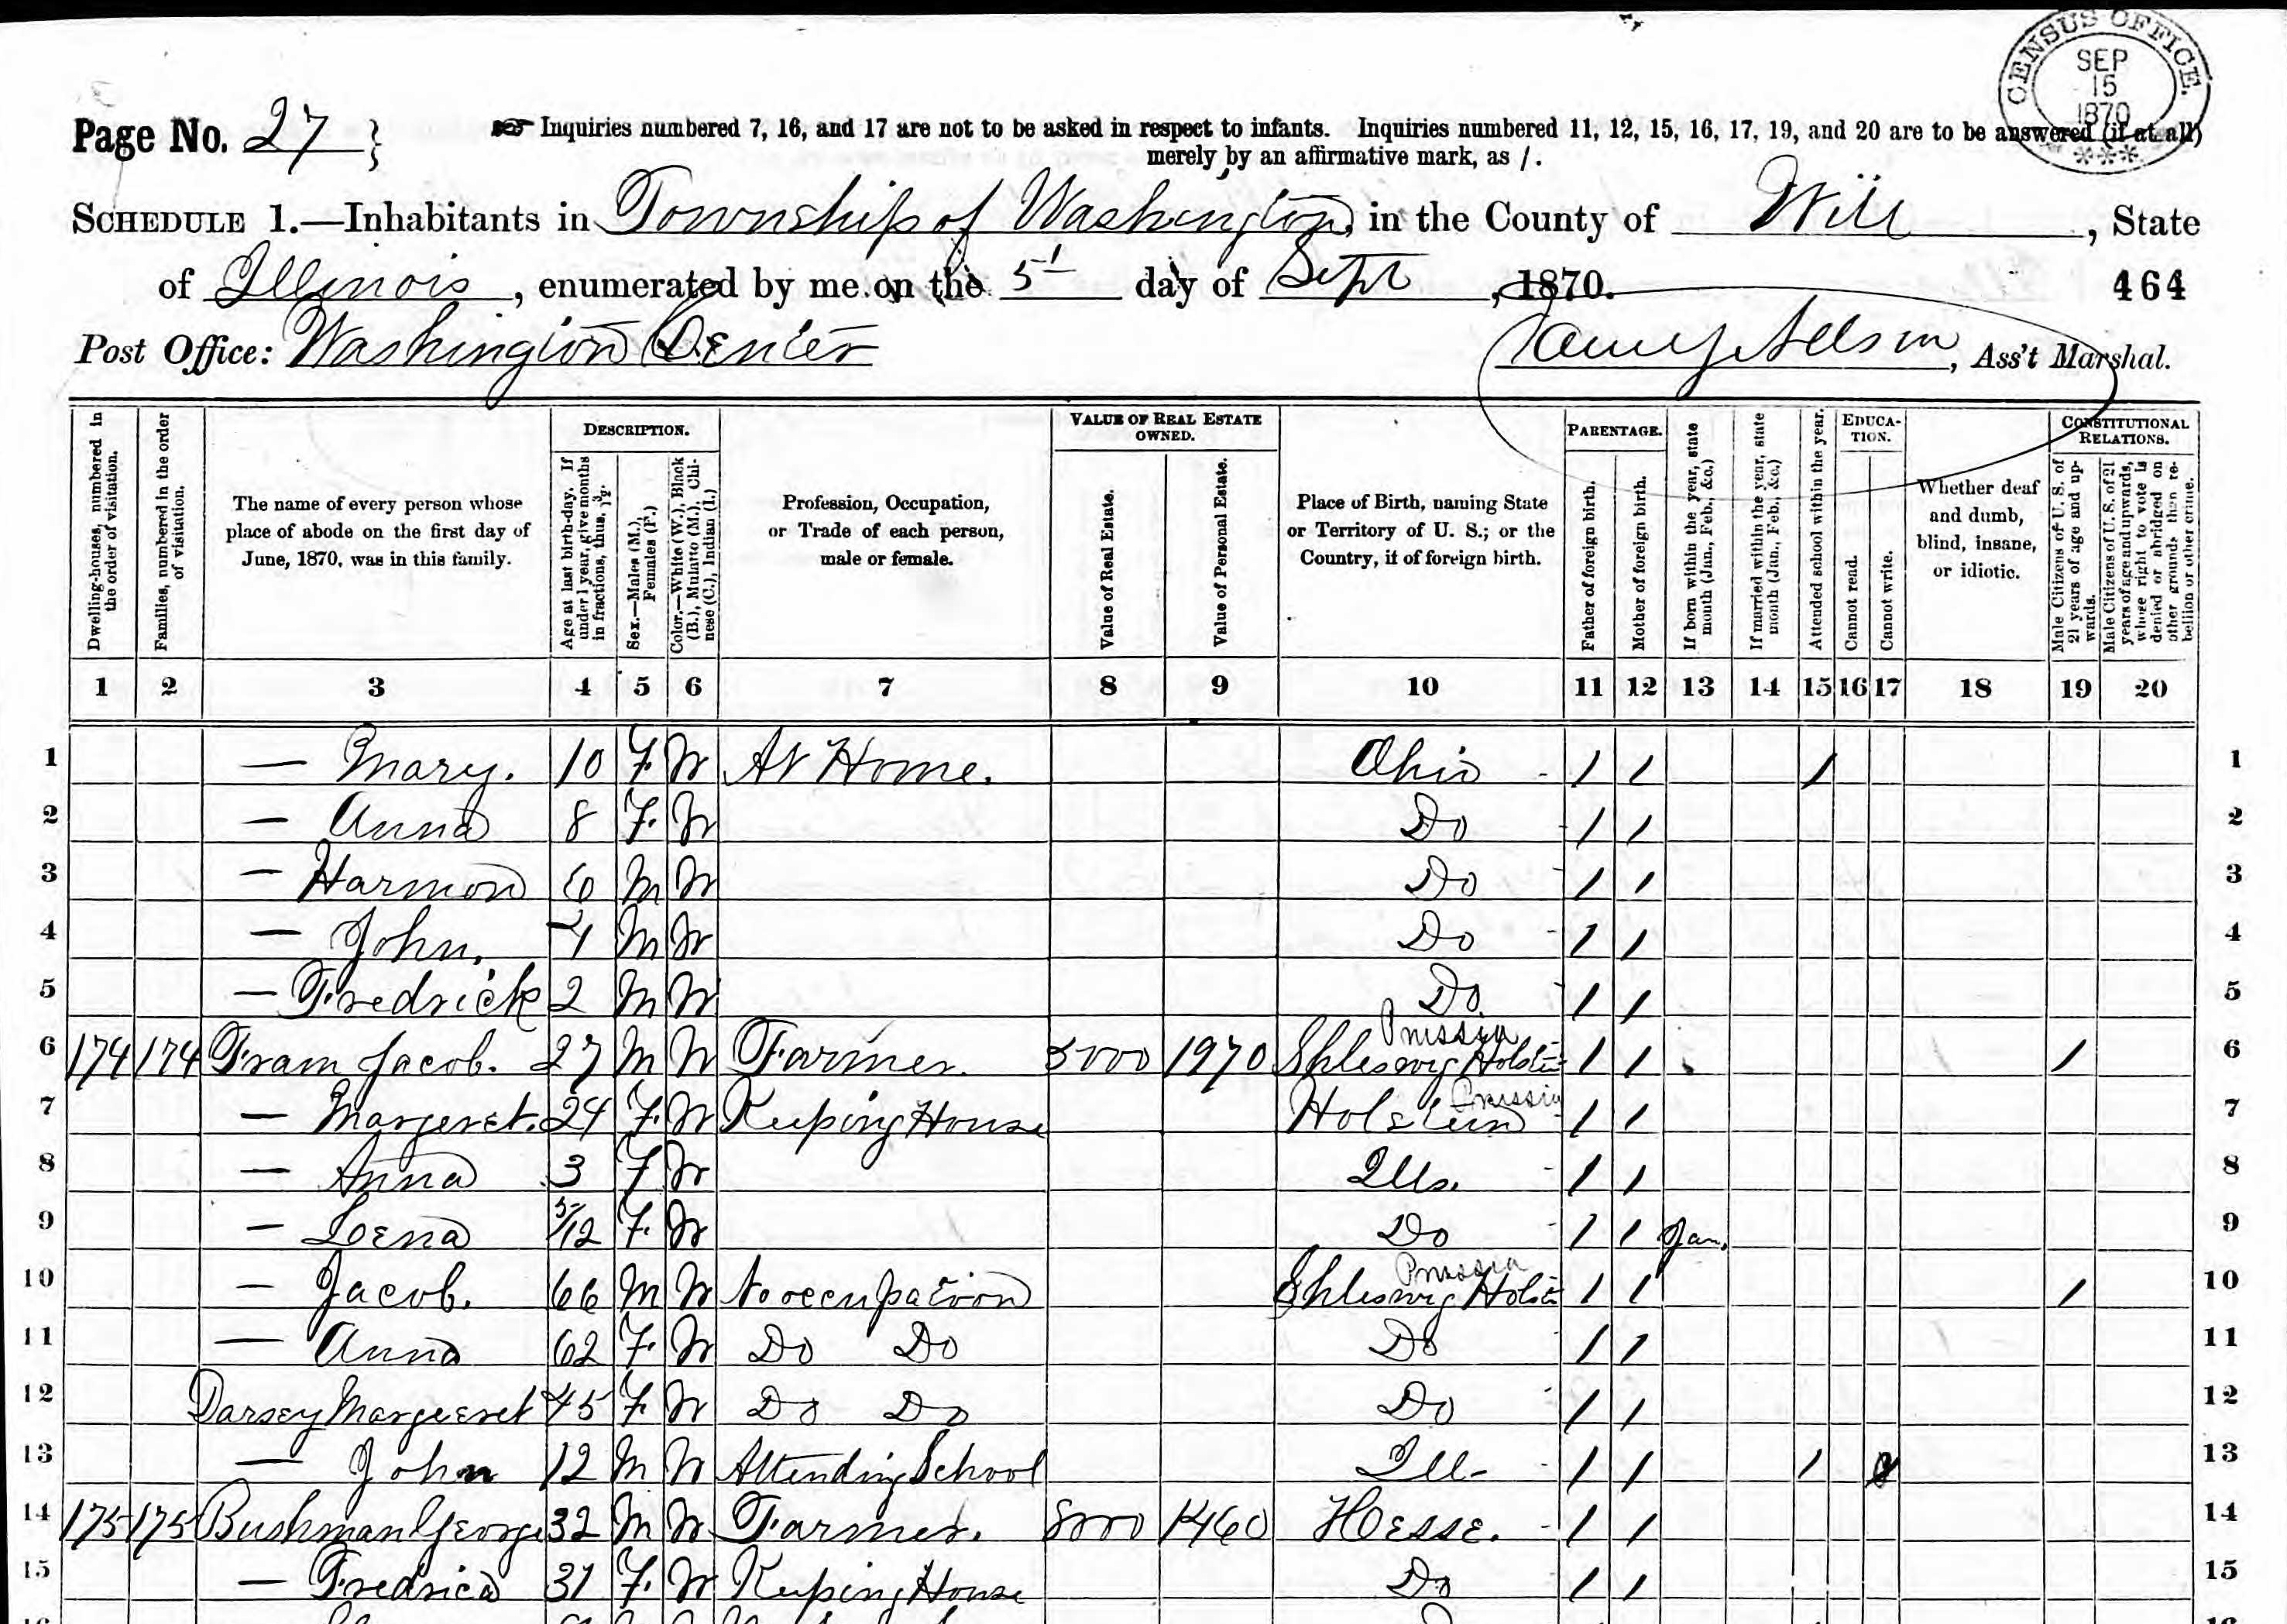 CENSUS OFFICE.
SEP
15
1870
***
Page No. 27 }
☞ Inquiries numbered 7, 16, and 17 are not to be asked in respect to infants. Inquiries numbered 11, 12, 15, 16, 17, 19, and 20 are to be answered (if at all)
merely by an affirmative mark, as /.
SCHEDULE 1.—Inhabitants in Township of Washington, in the County of Will, State
of Illinois, enumerated by me on the 5 day of Sept, 1870. 464
Post Office: Washington Center
Nelson, Ass't Marshal.
Dwelling-houses, numbered in the order of visitation.
Families, numbered in the order of visitation.
The name of every person whose place of abode on the first day of June, 1870, was in this family.
DESCRIPTION.
Age at last birth-day. If under 1 year, give months in fractions, thus, 3/12.
Sex.—Males (M.), Females (F.)
Color.—White (W.), Black (B.), Mulatto (M.), Chinese (C.), Indian (I.)
Profession, Occupation, or Trade of each person, male or female.
VALUE OF REAL ESTATE OWNED.
Value of Real Estate.
Value of Personal Estate.
Place of Birth, naming State or Territory of U. S.; or the Country, if of foreign birth.
PARENTAGE.
Father of foreign birth.
Mother of foreign birth.
If born within the year, state month (Jan., Feb., &c.)
If married within the year, state month (Jan., Feb., &c.)
Attended school within the year.
EDUCATION.
Cannot read.
Cannot write.
Whether deaf and dumb, blind, insane, or idiotic.
CONSTITUTIONAL RELATIONS.
Male Citizens of U. S. of 21 years of age and upwards.
Male Citizens of U. S. of 21 years of age and upwards, whose right to vote is denied or abridged on other grounds than rebellion or other crime.
1 2 3 4 5 6 7 8 9 10 11 12 13 14 15 16 17 18 19 20
1 — Mary. 10 F W At Home. Ohio / / / 1
2 — Anna 8 F. W Do / / 2
3 — Harmon 6 M W Do / / 3
4 — John, 4 M W Do / / 4
5 — Fredrick 2 M W Do / / 5
6 174 174 Fram Jacob. 27 M W Farmer. 5000 1970 Shleswig Holstein Prussia / / / 6
7 — Margeret. 24 F. W Keeping House Holstein Prussia / / 7
8 — Anna 3 F W Ills. / / 8
9 — Loena 5/12 F. W Do / / Jan. 9
10 — Jacob. 66 M W No occupation Shleswig Holst Prussia / / / 10
11 — Anna 62 F. W Do Do Do / / 11
12 Darsey Margeeret 45 F. W Do Do Do / / 12
13 — John 12 M W Attending School Ill- / / / 13
14 175 175 Bushman George 32 M W Farmer. 8000 1460 Hoesse. / / 14
15 — Fredrica 31 F. W Keeping House Do / / 15